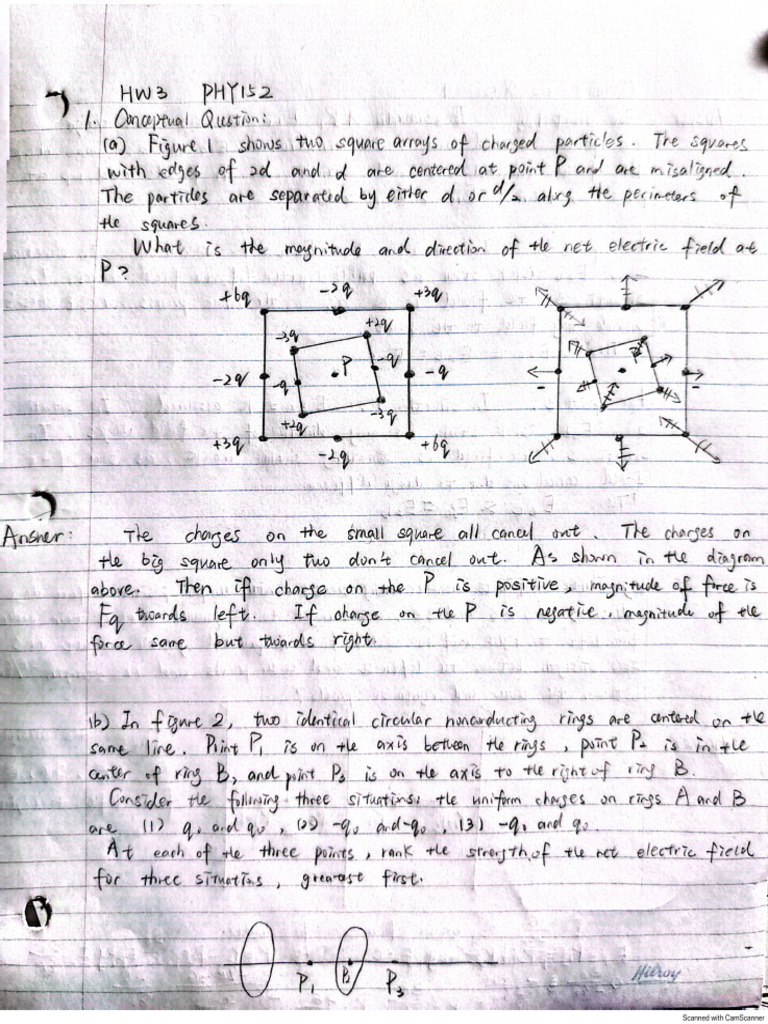 HW3 PHY152
1. Conceptual Question:
(a) Figure 1 shows two square arrays of charged particles. The squares
with edges of 2d and d are centered at point P and are misaligned.
The particles are separated by either d or d/2 along the perimeters of
the squares.
What is the magnitude and direction of the net electric field at
P?
+6q -2q +3q
-3q +2q
-2q -q P -q -q
+2q -3q
+3q -2q +6q
Answer: The charges on the small square all cancel out. The charges on
the big square only two don't cancel out. As shown in the diagram
above. Then if charge on the P is positive, magnitude of force is
Eq towards left. If charge on the P is negative, magnitude of the
force same but towards right.
1b) In figure 2, two identical circular nonconducting rings are centered on the
same line. Point P1 is on the axis between the rings, point P2 is in the
center of ring B, and point P3 is on the axis to the right of ring B.
Consider the following three situations: the uniform charges on rings A and B
are (1) q0 and q0, (2) -q0 and -q0, (3) -q0 and q0.
At each of the three points, rank the strength of the net electric field
for three situations, greatest first.
P1 P3
Hilroy
Scanned with CamScanner